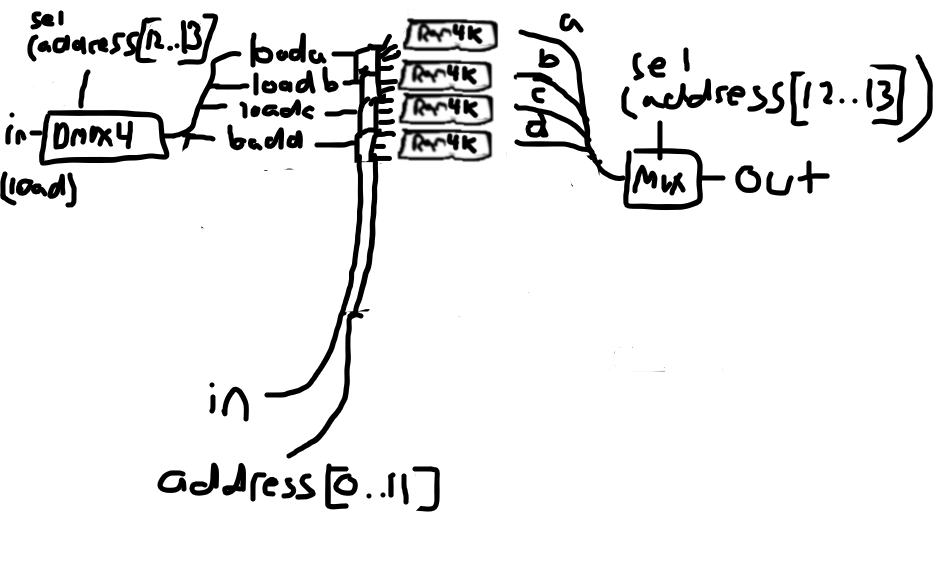 sel
(address[12..13]
in
Dmux4
(load)
loada
loadb
loadc
loadd
Ram4K
Ram4K
Ram4K
Ram4K
a
b
c
d
sel
(address[12..13])
Mux
out
in
address[0..11]